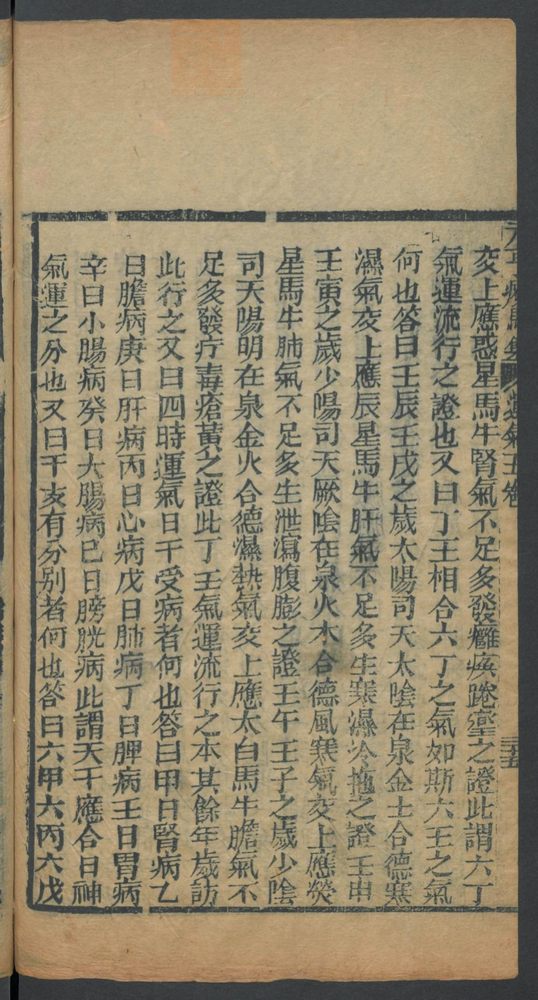 交上應惑星馬牛腎氣不足多發癱瘓跪䠊之證此謂六丁
氣運流行之證也又曰丁壬相合六丁之氣如斯六壬之氣
何也答曰壬辰壬戌之歲太陽司天太陰在泉金土合德寒
濕氣交上應辰星馬牛肝氣不足多生寒濕冷拖之證壬申
壬寅之歲少陽司天厥陰在泉火木合德風寒氣交上應熒
星馬牛肺氣不足多生泄瀉腹膨之證壬午壬子之歲少陰
司天陽明在泉金火合德濕熱氣交上應太白馬牛膽氣不
足多發疔毒瘡黃之證此丁壬氣運流行之本其餘年歲訪
此行之又曰四時運氣日干受病者何也答曰甲日腎病乙
日膽病庚日肝病丙日心病戊日肺病丁日脾病壬日胃病
辛日小腸病癸日大腸病巳日膀胱病此謂天干應合日神
氣運之分也又曰干支有分別者何也答曰六甲六丙六戊